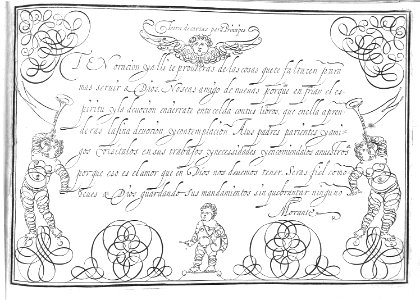 Letra de brebes para Principes
EN oracion y alli te proveeras de las cosas que te faltaren para
mas servir a Dios. No seas amigo de nuevas porque enfrian el es
piritu y la devocion encierrate en tu celda con tus libros, que en ella apren
deras la fina devocion y contemplacion. A tus padres parientes y ami
gos visitalos en sus trabajos y necessidades y encomiendalos a nuestro Sr.
porque eso es el amor que en Dios nos devemos tener. Seras fiel como
deves a Dios guardando sus mandamientos sin quebrantar ninguno
Morante